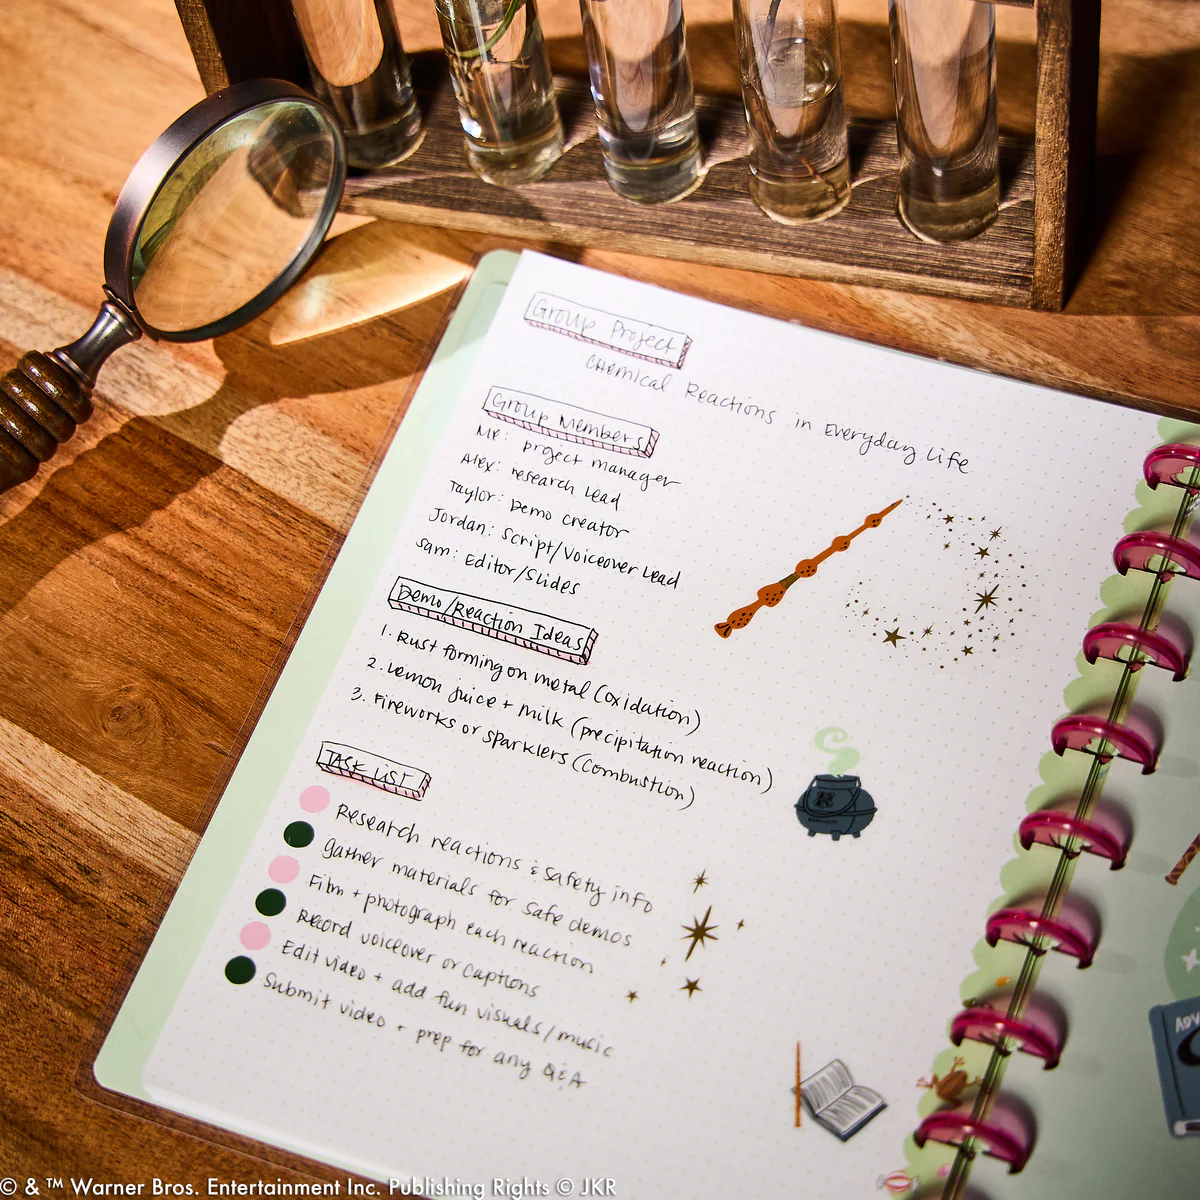 Group Project
Chemical Reactions in Everyday Life
Group Members
Me: project manager
Alex: research lead
Taylor: Demo creator
Jordan: Script/Voiceover Lead
Sam: Editor/Slides
Demo/Reaction Ideas
1. Rust forming on metal (oxidation)
2. Lemon juice + milk (precipitation reaction)
3. Fireworks or sparklers (combustion)
TASK LIST
Research reactions & safety info
gather materials for safe demos
Film + photograph each reaction
Record voiceover or captions
Edit video + add fun visuals/music
Submit video + prep for any Q&A
ADV
© & ™ Warner Bros. Entertainment Inc. Publishing Rights © JKR